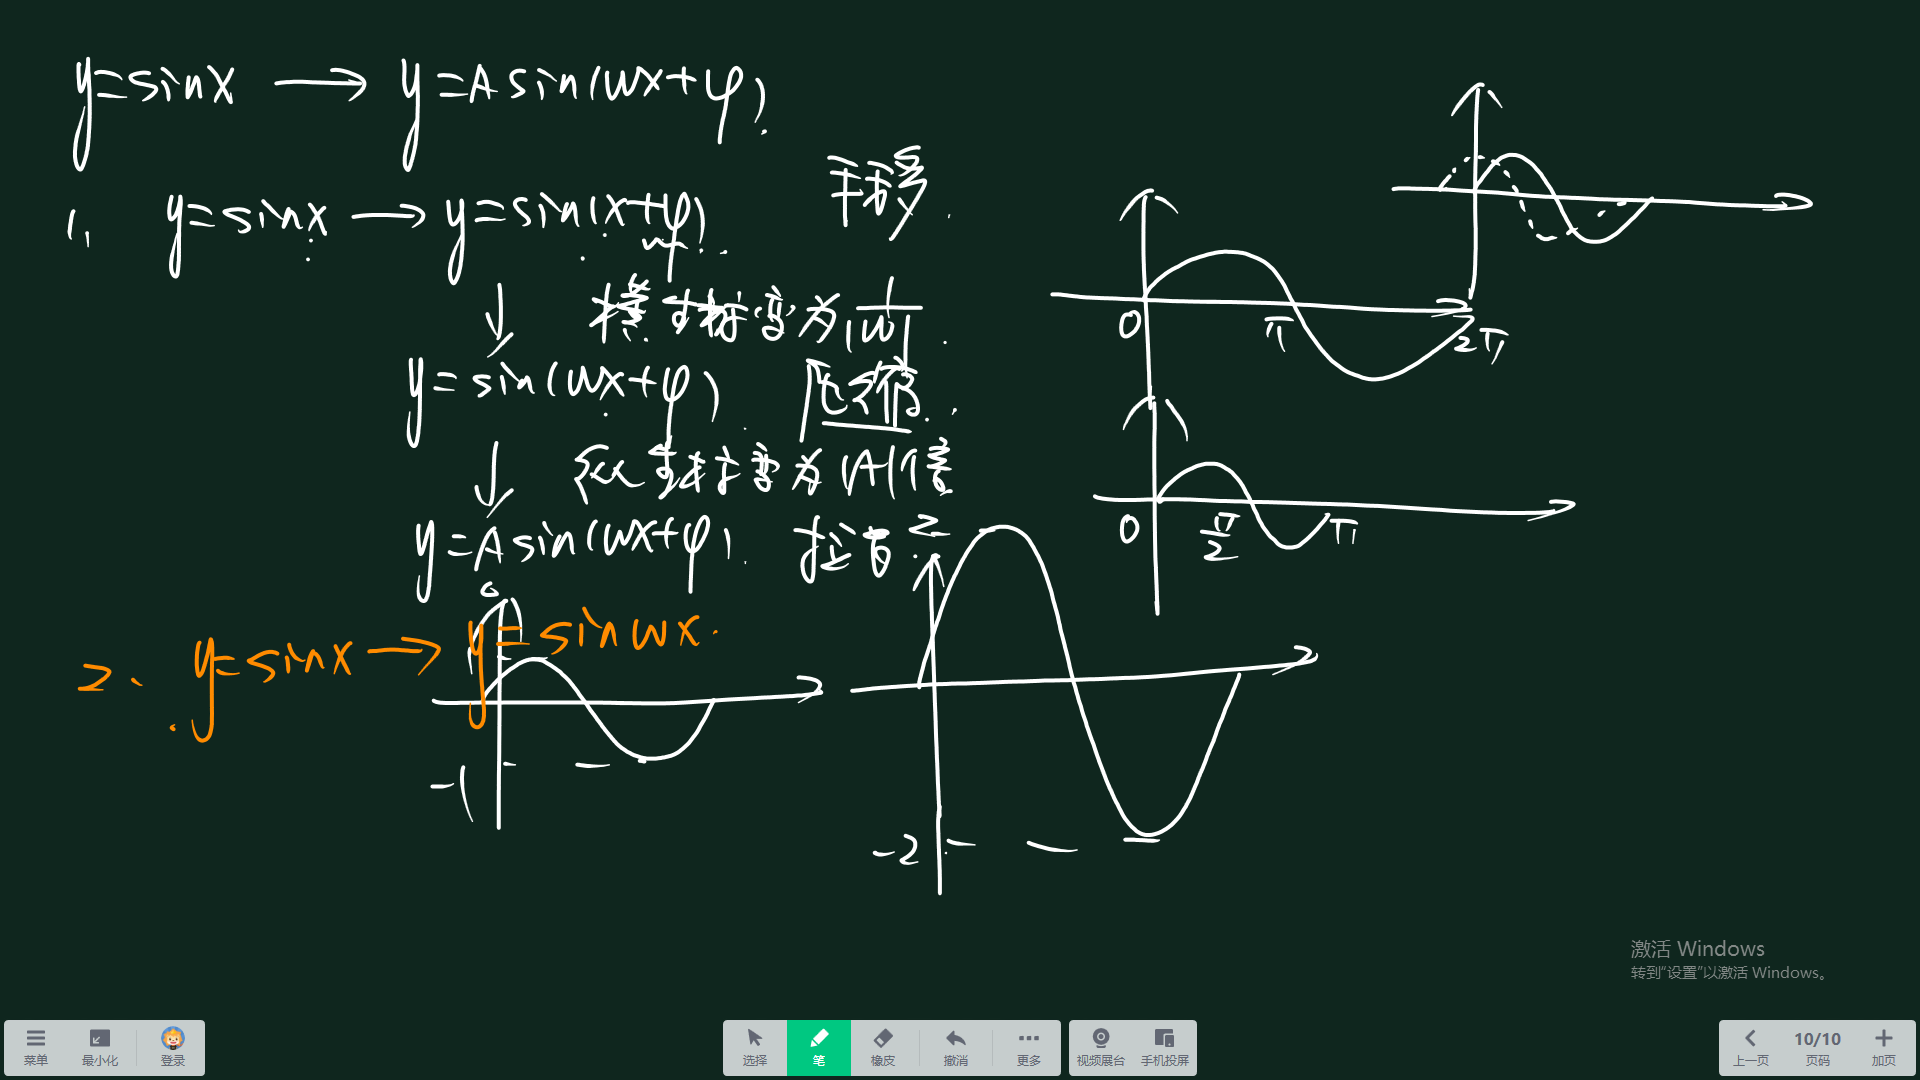 y=sinx → y=Asin(wx+φ)
1. y=sinx → y=sin(x+φ). 平移.
↓ 横坐标变为 1/|w|.
y=sin(wx+φ). 压缩.
↓ 纵坐标变为|A|倍
y=Asin(wx+φ).
2
2. y=sinx → y=sinwx.
-1
-2
0 π 2π
0 π/2 π
激活 Windows
转到“设置”以激活 Windows。
菜单 最小化 登录 选择 笔 橡皮 撤消 更多 视频展台 手机投屏 上一页 10/10 页码 加页